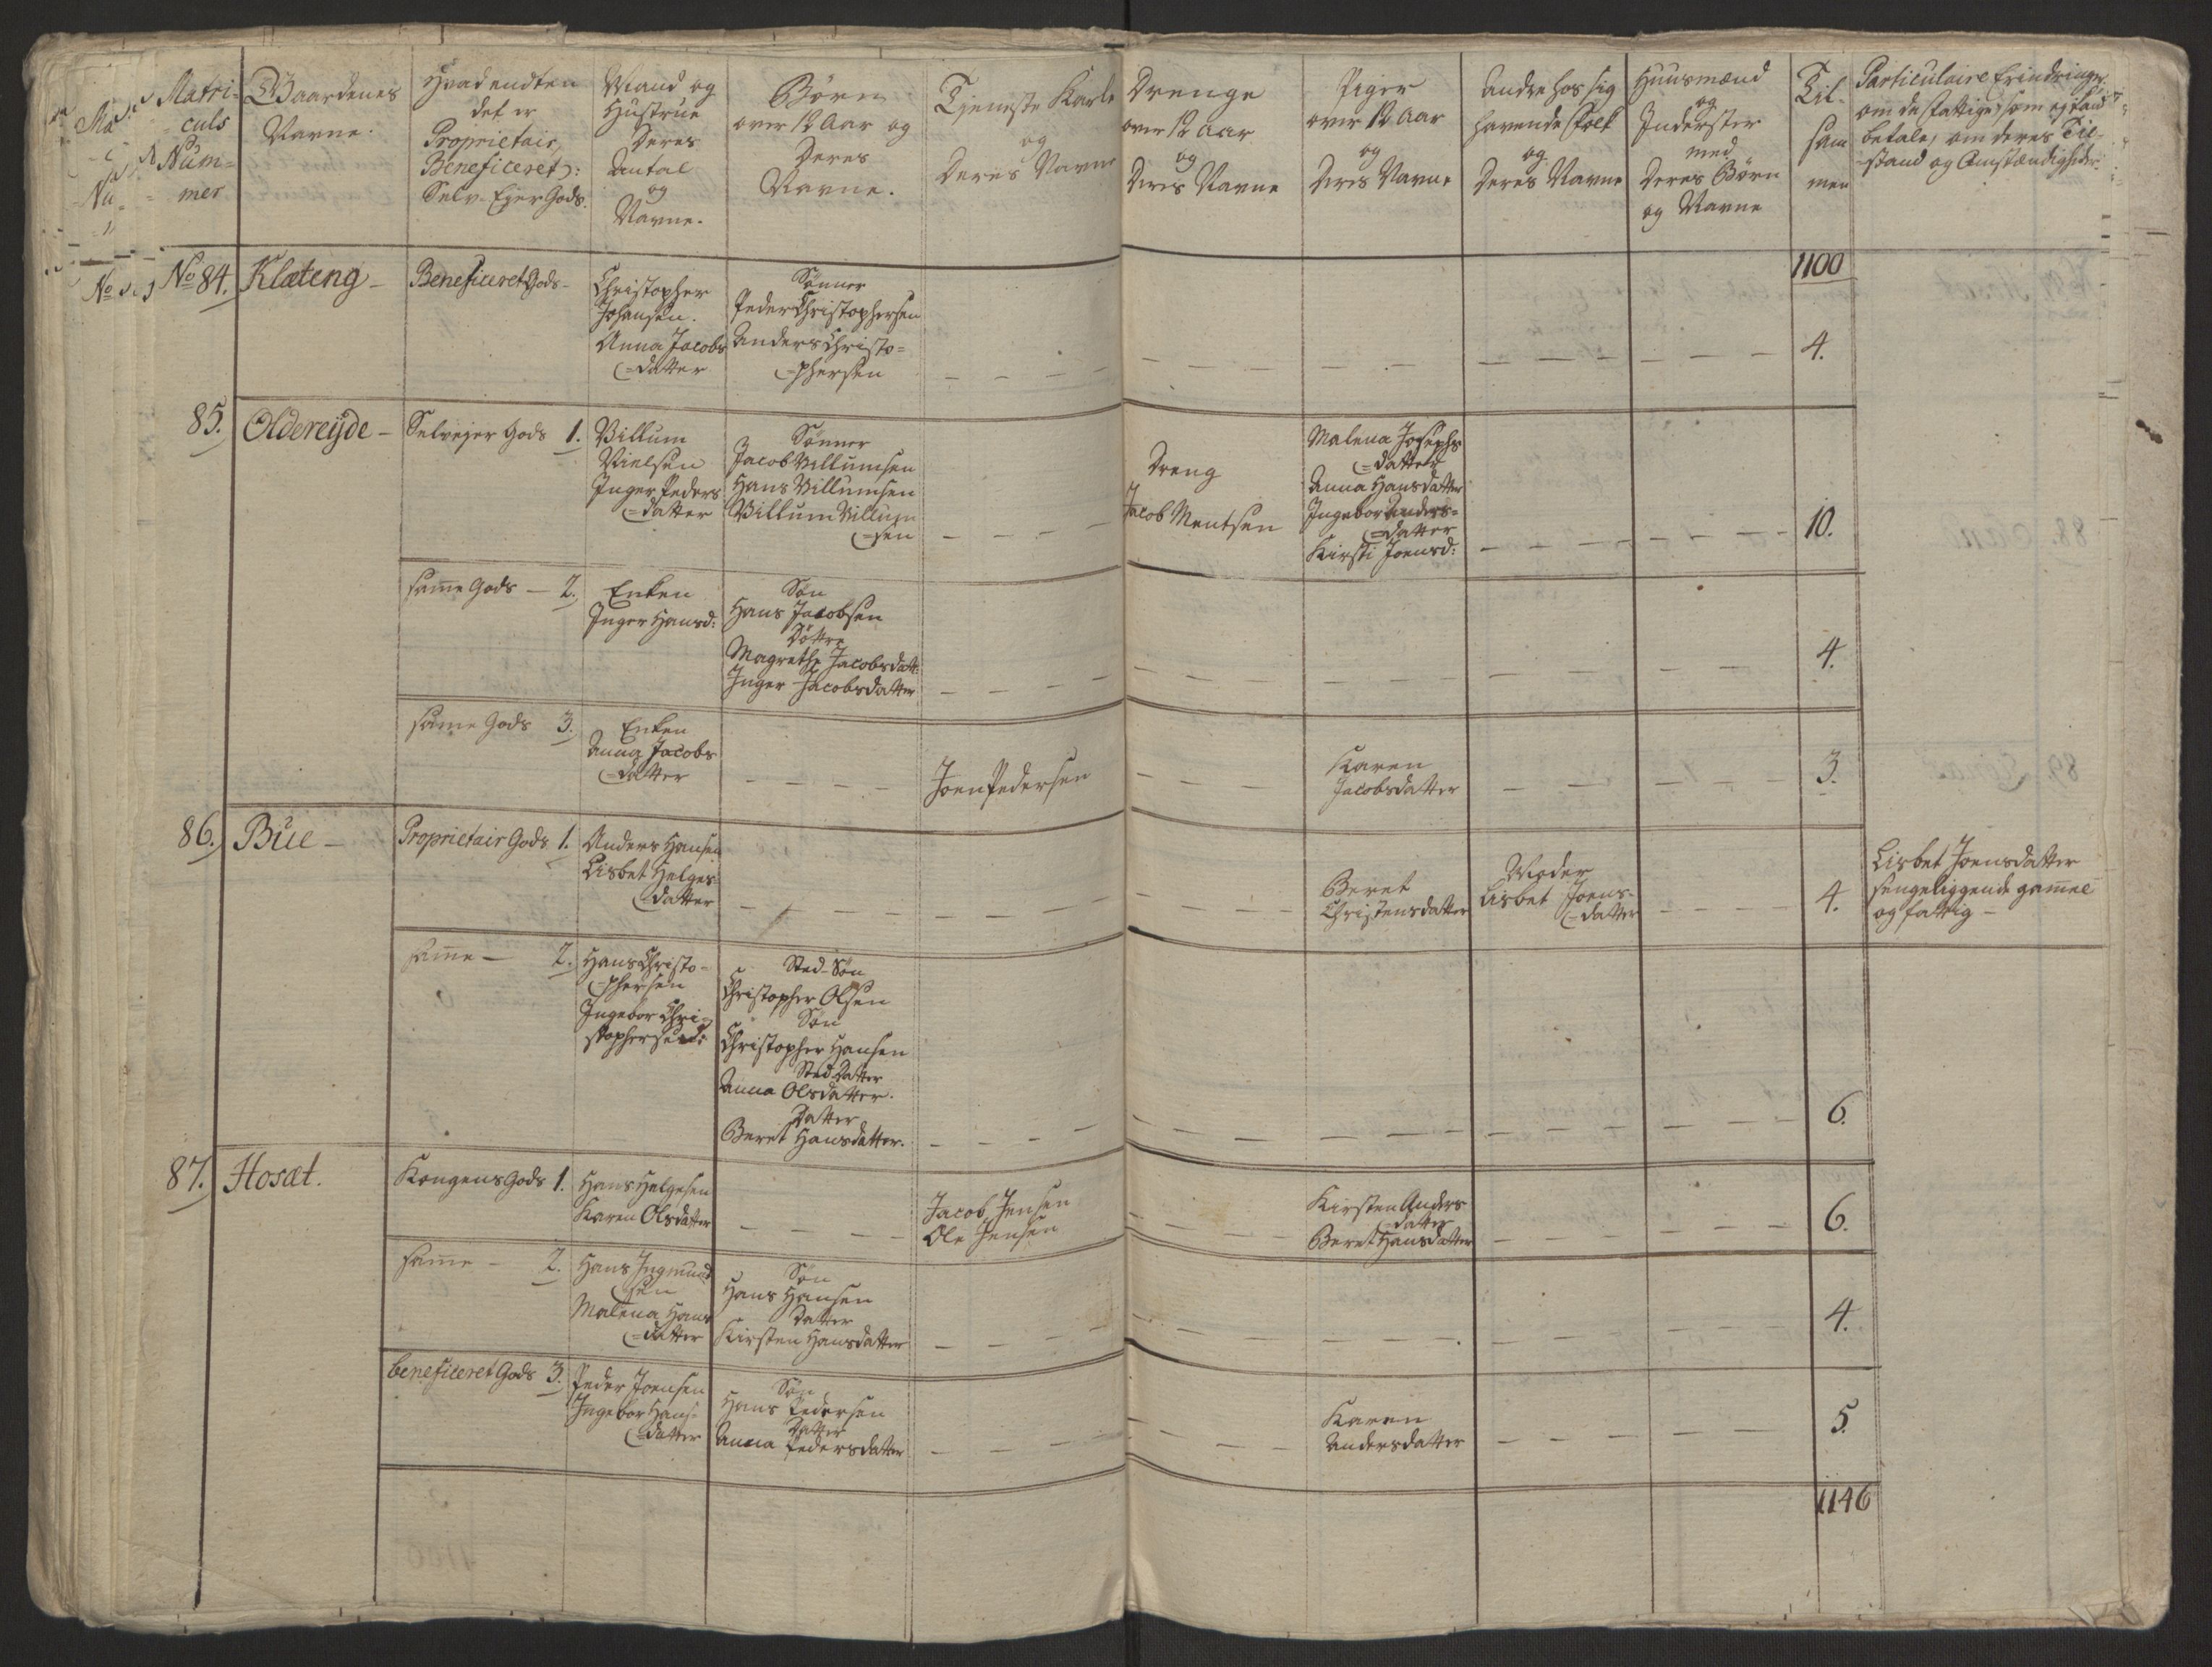 Matri-
culs
Num-
mer
Gaardenes
Navne.
Hvad endten
det er
Proprietair,
Beneficeret :
Selv-Eyer Gods.
Mand og
Hustrue
Deres
Antal
og
Navne.
Børn
over 12 Aar og
Deres
Navne.
Tjeneste Karle
og
Deres Navne
Drenge
over 12 Aar
og
Deres Navne
Piger
over 12 Aar
og
Deres Navne
Andre hos sig
havende Folk
og
Deres Navne
Huusmænd
og
Inderster
med
Deres Børn
og Navne
Til-
sam
men
Particulaire Erindringer
om de fattige, som ej kand
betale, om deres Til-
stand og Omstændigheder.
1100
No 84. Klæteng -
Beneficeret Gods -
Christopher
Johansen.
Anna Jacobs
=datter
Sønner
Peder Christophersen
Anders Christo=
=phersen
4.
85. Oldereijde -
Selvejer Gods 1.
Villum
Nielsen
Inger Peders
=datter
Sønner
Jacob Villumsen
Hans Villumsen
Villum Villum
=sen
Dreng
Jacob Mentsen
Malena Josephs
=datter
Anna Hansdatter
Ingebor Anders=
=datter
Kirsti Joensd:
10.
samme Gods - 2.
Enken
Inger Hansd:
Søn
Hans Jacobsen
Døttre
Magrethe Jacobsdatt:
Inger Jacobsdatter
4.
samme Gods 3.
Enken
Anna Jacobs
=datter
Joen Pedersen
Karen
Jacobsdatter
3.
86. Büe -
Proprietair Gods 1.
Anders Hansen
Lisbet Helges=
=datter
Beret
Christensdatter
Moder
Lisbet Joens=
=datter
4.
Lisbet Joensdatter
sengeliggende gamel
og fattig -
samme - 2.
Hans Christo=
=phersen
Ingebor Chri=
stophersend:
Sted-Søn
Christopher Olsen
Søn
Christopher Hansen
Sted Datter
Anna Olsdatter.
Datter
Beret Hansdatter.
6.
87. Hosæt.
Kongens Gods 1.
Hans Helgesen
Karen Olsdatter
Jacob Jensen
Ole Jensen
Kirsten Anders
=datter
Beret Hansdatter
6.
samme - 2.
Hans Ingmund
sen
Malena Hans
=datter
Søn
Hans Hansen
Datter
Kirsten Hansdatter
4.
beneficeret Gods 3.
Peder Joensen
Ingebor Hans=
=datter
Søn
Hans Pedersen
Datter
Anna Pedersdatter
Karen
Andersdatter
5.
1146